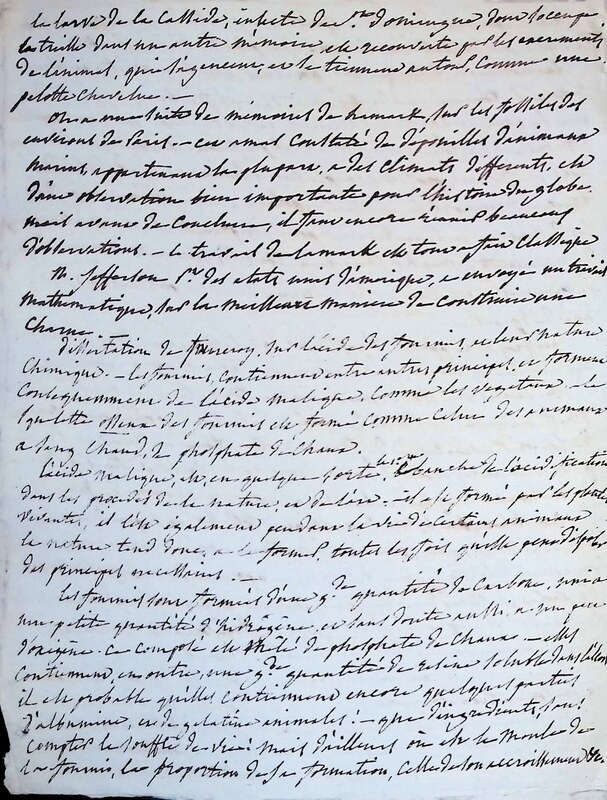 la larve de la Casside, insecte de St. domingue, dont s'occupe
latreille dans un autre mémoire, est recouverte par les excréments
de l'animal, qui s'agencent, et le tiennent autour, comme une
pelotte chevelue. —
On a une suite de mémoires de lamark, sur les fossiles des
environs de Paris. — cet amas constaté de dépouilles d'animaux
marins, appartenans la plupart, a des climats differents, est
d'une observation bien importante pour l'histoire du globe.
mais avant de conclure, il faut encore reunir beaucoup
d'observations. — le travail de lamark est tout a fait classique
M. Jefferson Pt. des etats unis d'amerique, a envoyé un travail
mathematique, sur la meilleure maniere de construire une
charue.
dissertation de fourcroy, sur l'acide des fourmis, et leur nature
chimique. — les fourmis, contiennent entre autres principes, et forment
consequemment de l'acide malique, comme les vegetaux. — le
squelette osseux des fourmis est formé comme celui des animaux
a sang chaud, de phosphate de chaux.
l'acide malique, est en quelque sorte, l'ébauche de l'acidification
dans les procedés de la nature, et de l'art. — il a se forme par les plantes
vivantes, il l'est egalement pendant la vie de certains animaux
la nature tend donc, a le former, toutes les fois qu'elle peut disposer
des principes necessaires. —
Les fourmis sont formées d'une gde quantité de carbone, unie a
une petite quantité d'hidrogène, et sans doute aussi, a un peu
d'oxigène. ce composé est mêlé de phosphate de chaux — elles
contiennent, en outre, une gde quantité de resine soluble dans l'alcool
il est probable qu'elles contiennent encore quelques parties
d'albumine, et de gelatine animales! — que d'ingredients, sans
compter le souffle de vie! mais d'ailleurs où est le moule de
la fourmis, la proportion de sa formation, celle de son accroissement &c.